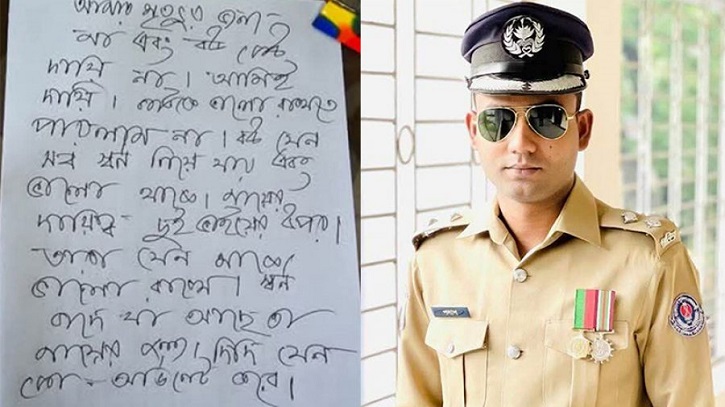 আমার মৃত্যুর জন্য
মা এবং বউ কেউ
দায়ি না। আমিই
দায়ি। কাউকে ভালো রাখতে
পারলাম না। বউ যেন
সব স্বর্ন নিয়ে যায় এবং
ভালো থাকে। মায়ের
দায়িত্ব দুই ভাইয়ের উপর।
তারা যেন মাকে
ভালো রাখে। স্বর্ন
বাদে যা আছে তা
মায়ের জন্য। দিদি যেন
কো-অর্ডিনেট করে।